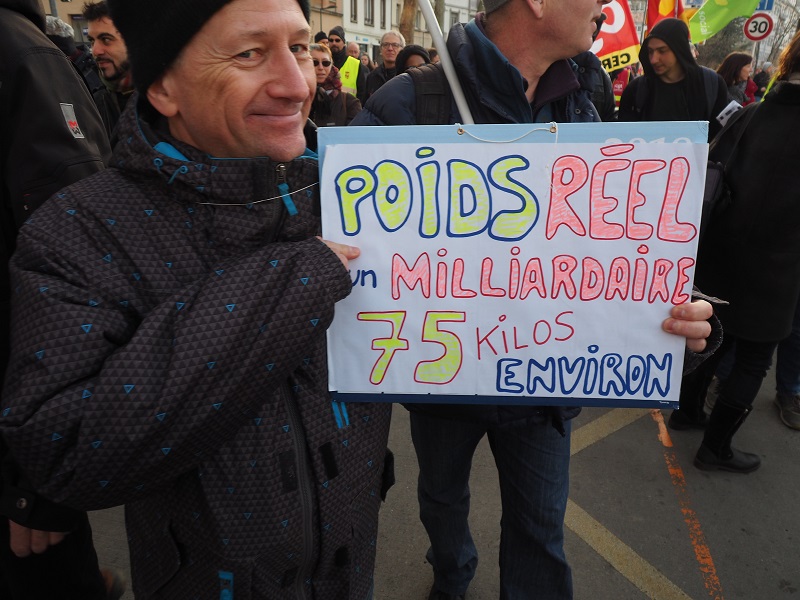 POIDS RÉEL
un MILLIARDAIRE
75 KILOS
ENVIRON
30